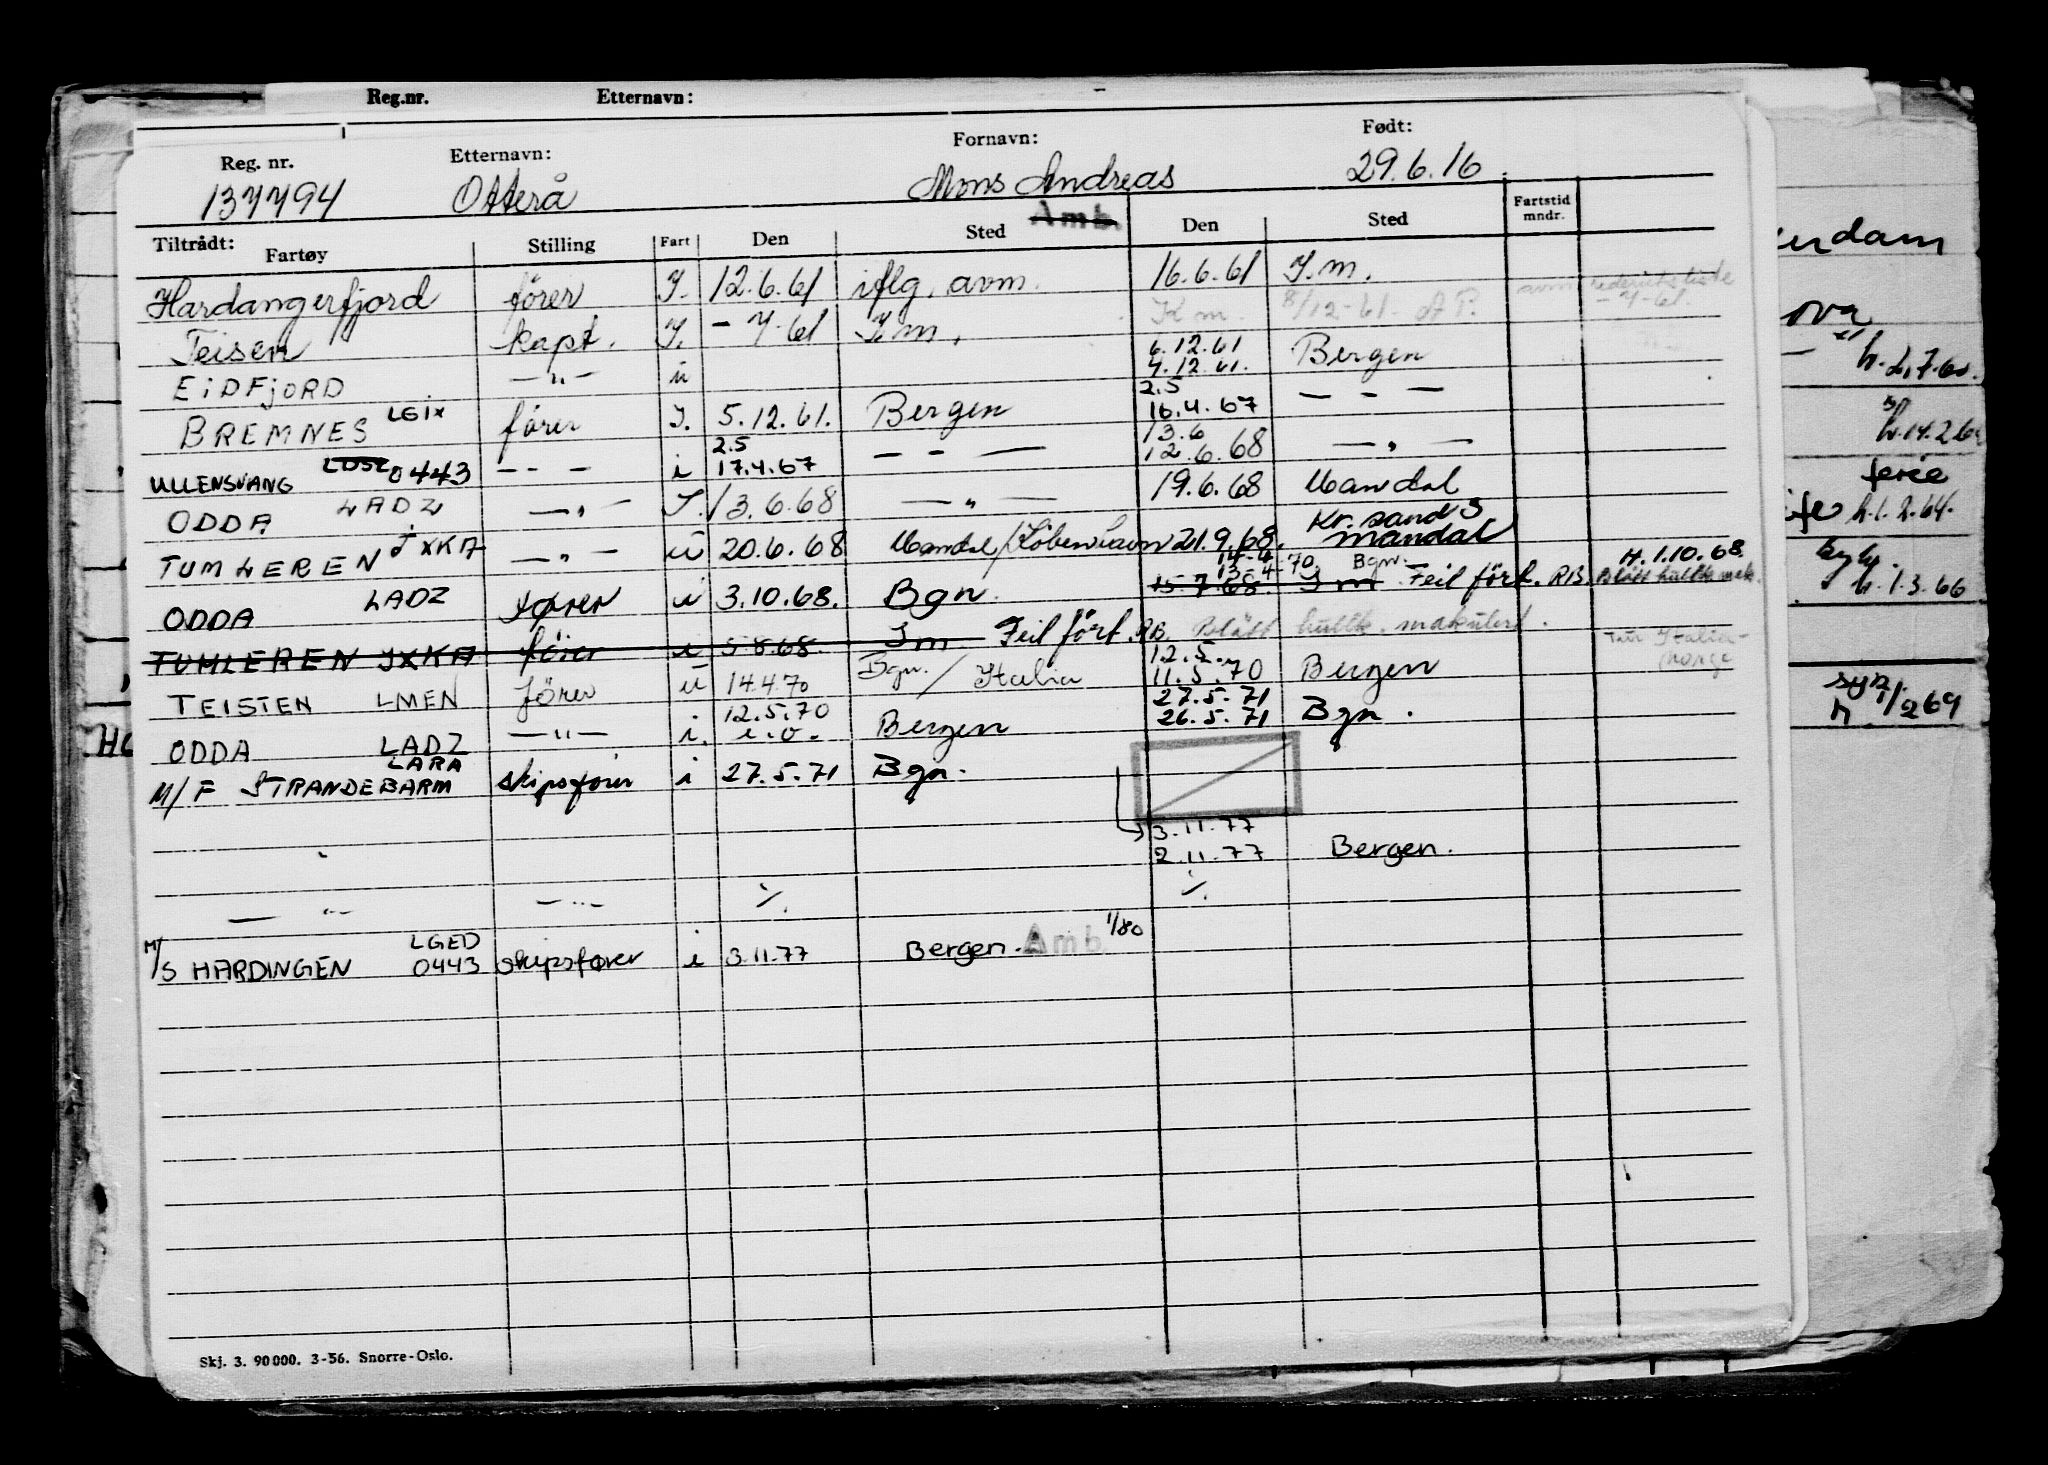 Reg.nr. Etternavn:
Reg. nr. Etternavn: Fornavn: Født:
137794 Otterå Mons Andreas 29.6.16
Amb.
Tiltrådt: Fartøy Stilling Fart Den Sted Den Sted Fartstid mndr.
Hardangerfjord fører I. 12.6.61 iflg. avm. 16.6.61 I.m.
Teisen kapt. I. - 7-61 I.m. K m. 8/12-61. AP. avm rederiets liste - 7-61.
EIDFJORD —"— u 6.12.61 4.12.61. Bergen
BREMNES LGIX fører I. 5.12.61. Bergen 2.5 16.4.67 — - —
ULLENSVANG 0443 — - — i 2.5 17.4.67 — - — 13.6 12.6.68 —"—
ODDA LADZ —"— I. 13.6.68 —"— 19.6.68 Mandal
TUMLEREN JXKA —"— u 20.6.68 Mandal/København 21.9.68. Kr.sand S Mandal
ODDA LADZ fører i 3.10.68. Bgn. 14-4 13-4-70 Bgn. 15.7.68. I m Feil ført. RB. H. 1.10.68 Blått hullk. mak.
TUMLEREN JXKA fører i 5.8.68. I m Feil ført RB. Blått hullk. makulert.
TEISTEN LMEN fører u 14.4.70 Bgn. / Italia 12.5. 11.5.70 Bergen Italia - Norge
ODDA LADZ —"— i. 12.5.70 Bergen 27.5.71 26.5.71 Bgn.
M/F STRANDEBARM LARA skipsfører i 27.5.71 Bgn.
3.11.77
2.11.77 Bergen.
— " — — " — ./. ./.
M/S HARDINGEN LGED 0443 skipsfører i 3.11.77 Bergen. Amb. 1/80
Skj. 3. 90000. 3-56. Snorre-Oslo.
dam
ova
h. 2.7.60.
h. 14.2.6
ferie
h. 1.2.64.
h. 1.3.66
syn